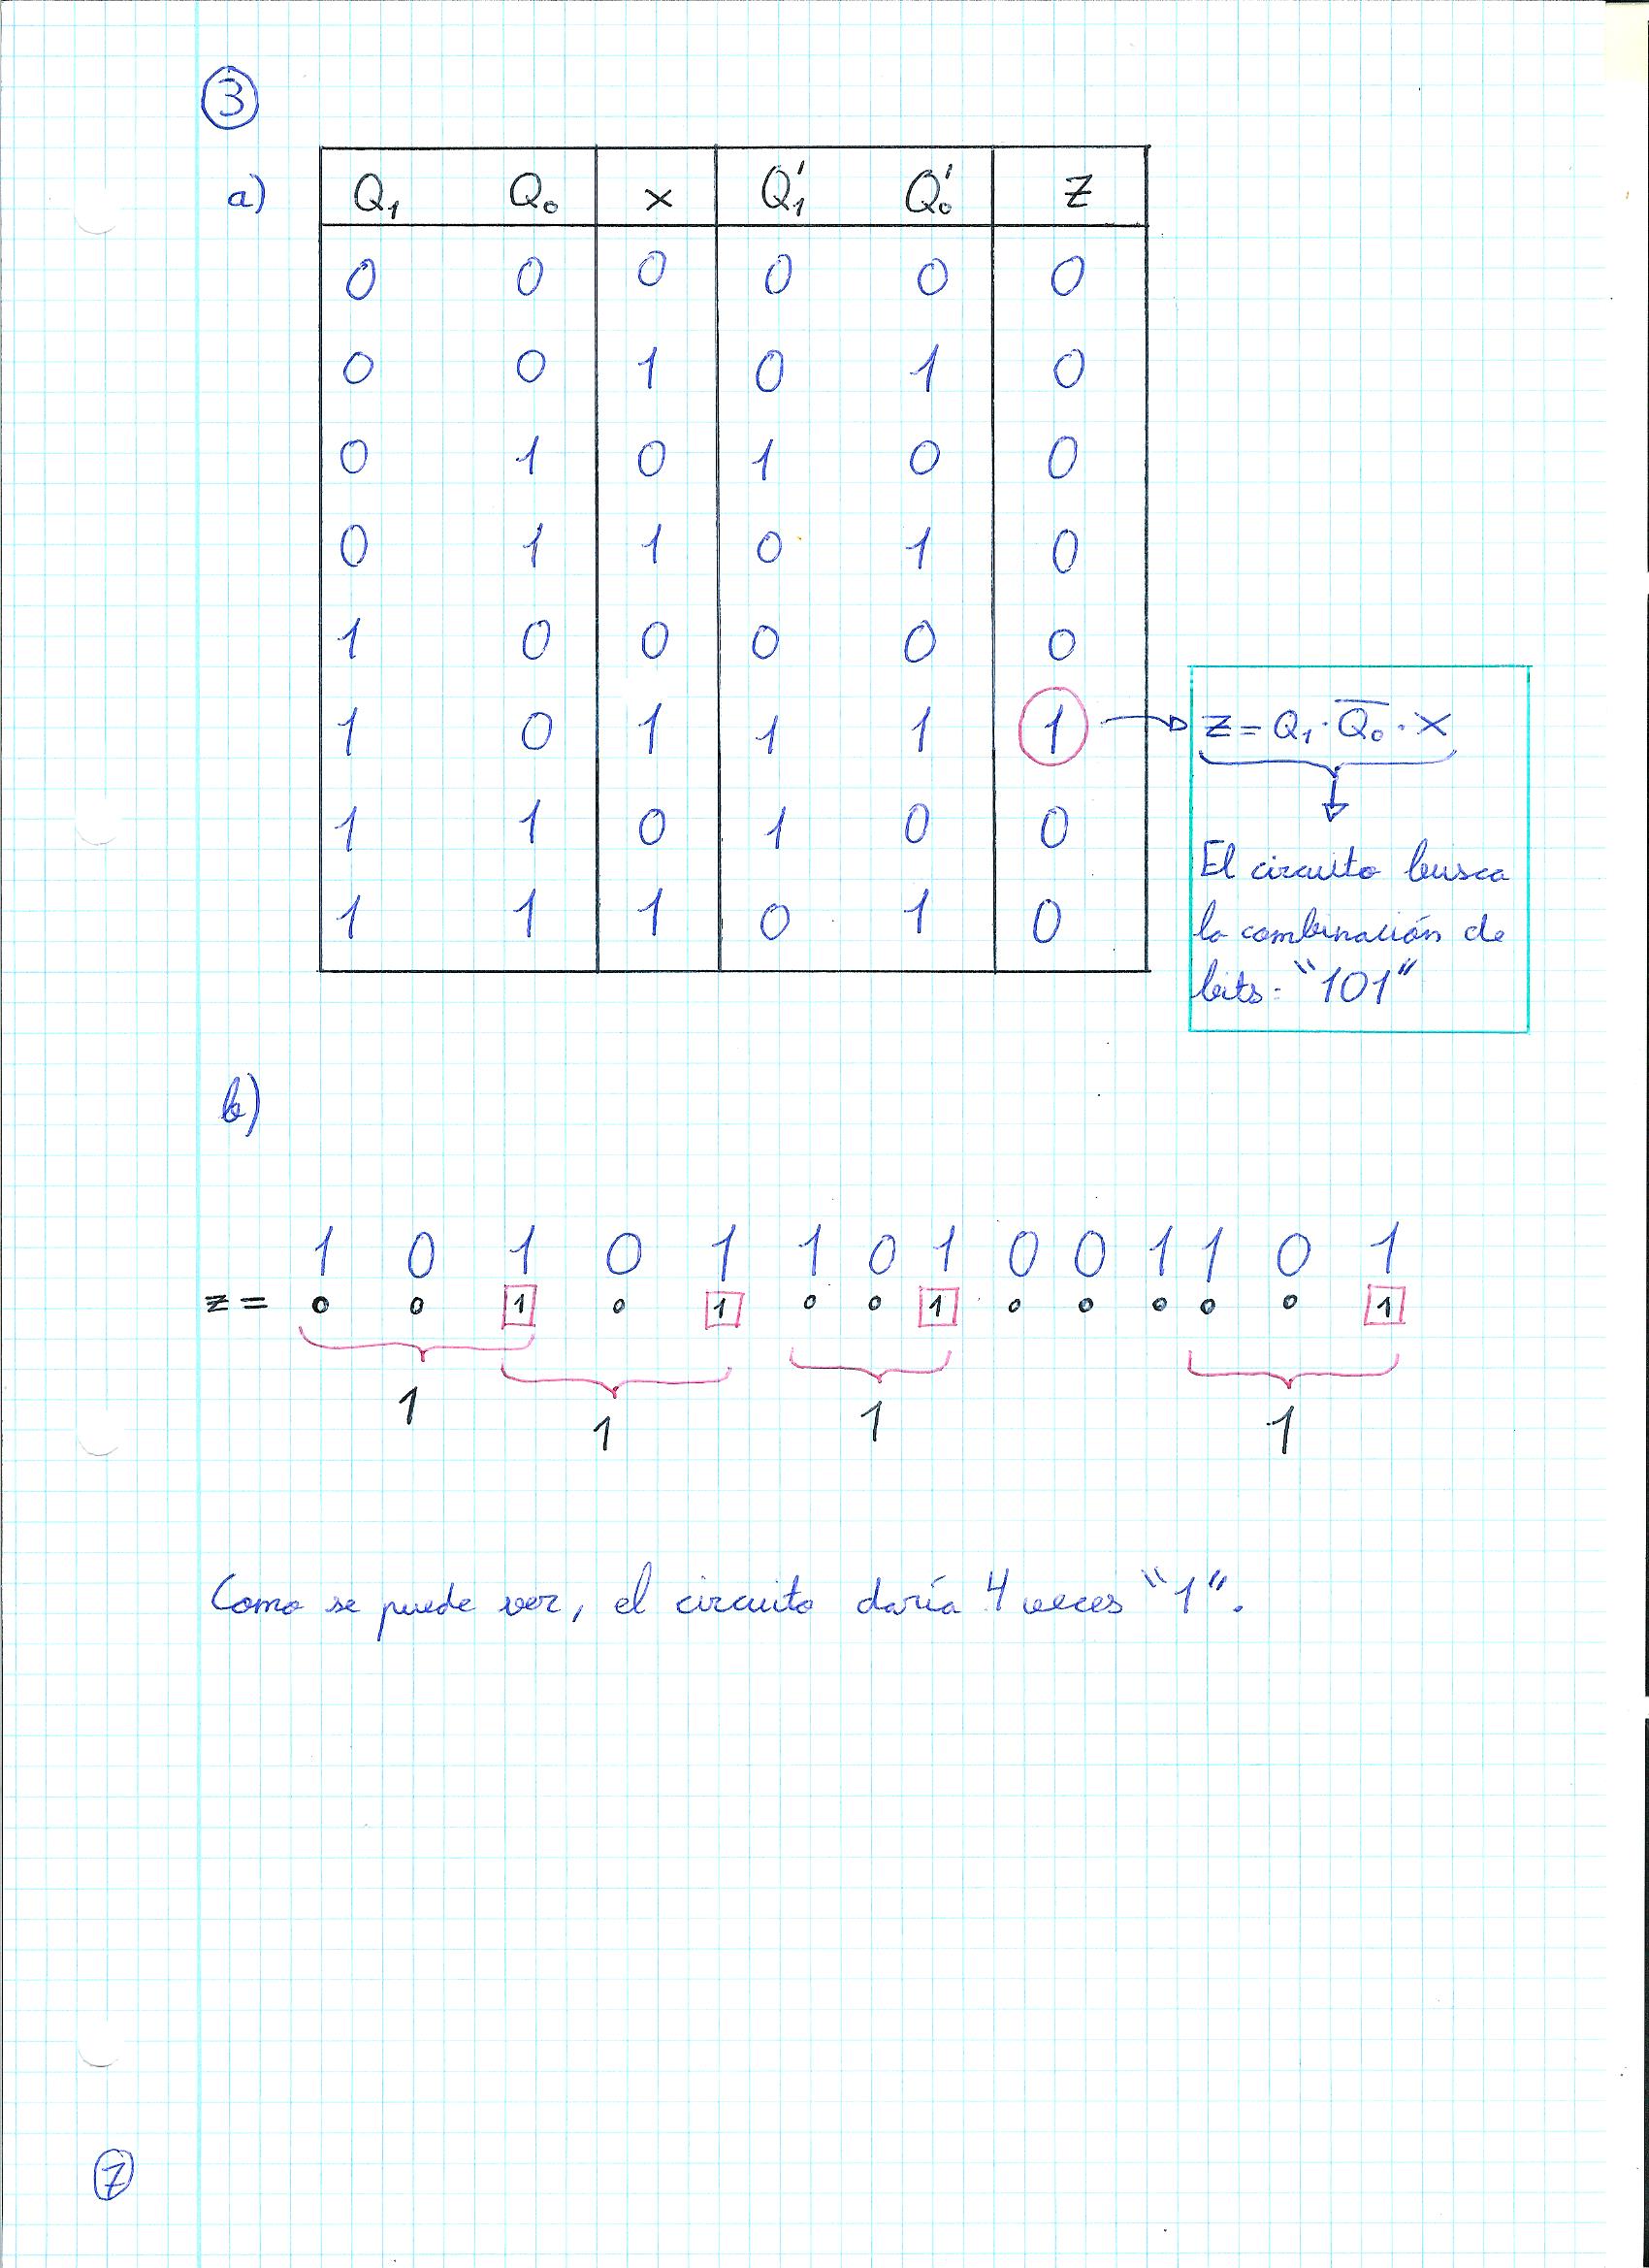 3
a) Q₁ Q₀ x Q₁' Q₀' z
0 0 0 0 0 0
0 0 1 0 1 0
0 1 0 1 0 0
0 1 1 0 1 0
1 0 0 0 0 0
1 0 1 1 1 1
z = Q₁ · Q̅₀ · x
1 1 0 1 0 0
1 1 1 0 1 0
El circuito busca
la combinación de
bits: "101"
b)
1 0 1 0 1 1 0 1 0 0 1 1 0 1
z = 0 0 1 0 1 0 0 1 0 0 0 0 0 1
1 1 1 1
Como se puede ver, el circuito daría 4 veces "1".
7